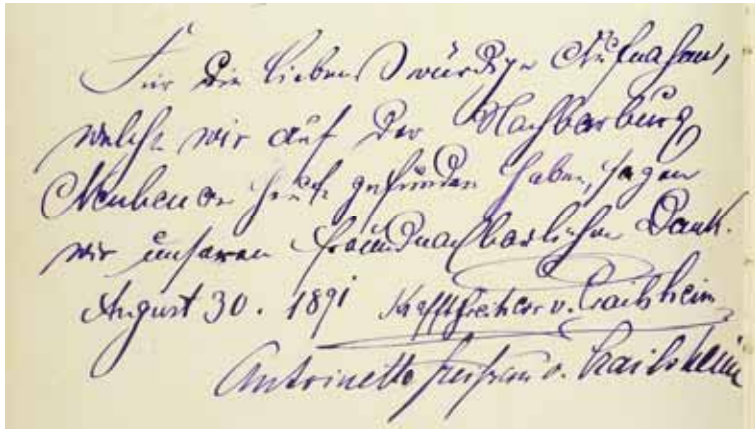 Für die liebenswürdige Aufnahme,
welche wir auf der Nachbarburg
Neubeuern heute gefunden haben, sagen
wir unseren freundnachbarlichen Dank.
August 30. 1891 Krafft Freiherr v. Crailsheim
Antoinette Freifrau v. Crailsheim